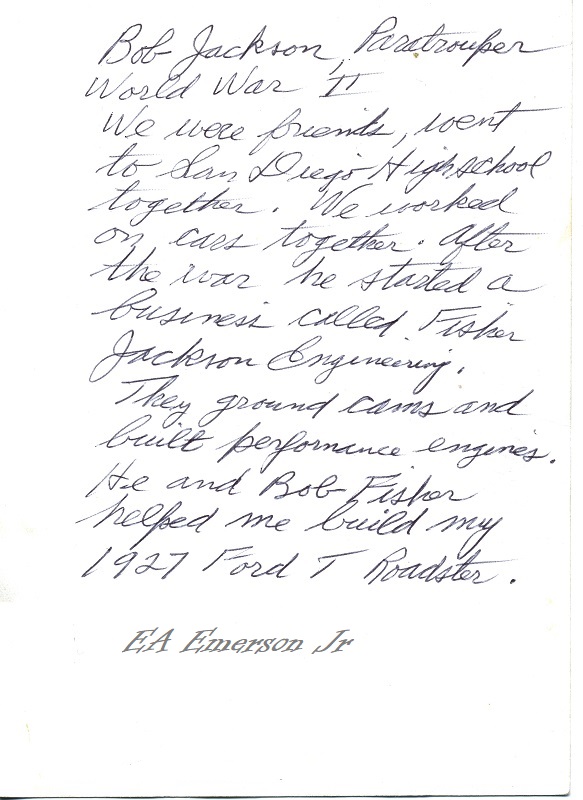 Bob Jackson, Paratrouper
World War II
We were friends, went
to San Diego High school
together. We worked
on cars together. After
the war he started a
business called Fisher
Jackson Engineering.
They ground cams and
built performance engines.
He and Bob Fisher
helped me build my
1927 Ford T Roadster.
EA Emerson Jr